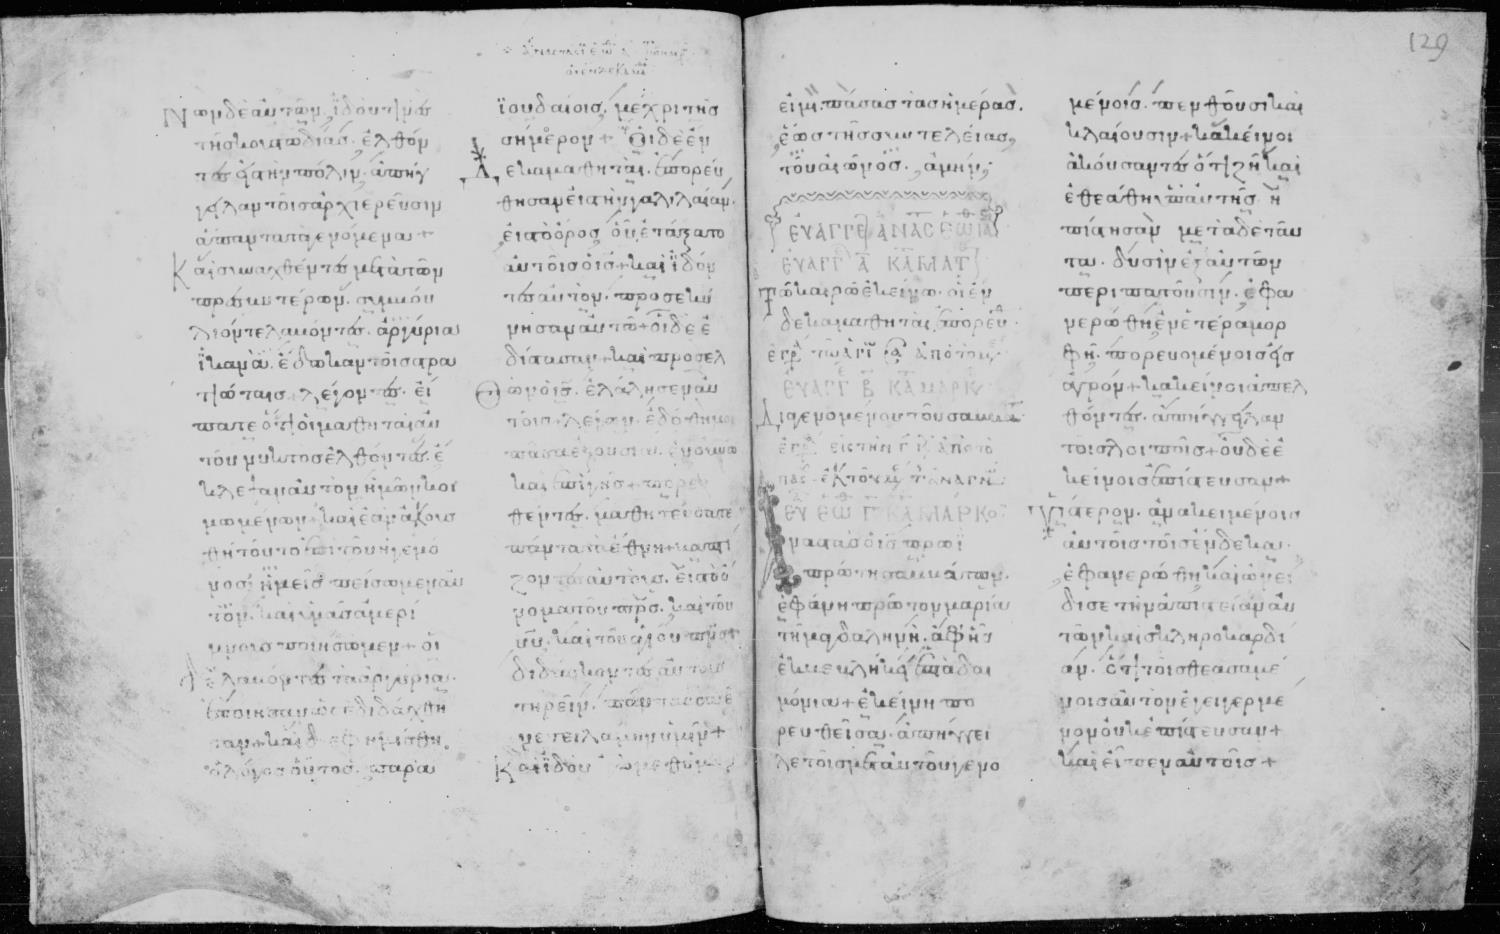 129
Νων δε αυτων, ϊδου τινες
της κουστωδίας. ἐλθόν
τες εἰς τὴν πόλιν, ἀπήγ
γειλαν τοῖς ἀρχιερεῦσιν
ἅπαντα τὰ γενόμενα +
Καὶ συναχθέντες μετὰ τῶν
πρεσβυτέρων. συμβού
λιόν τε λαβόντες. ἀργύρια
ϊκανὰ ἔδωκαν τοῖς στρα
τιώταις + λέγοντες. εἴ
πατε ὅτι οἱ μαθηταὶ αὐ
τοῦ νυκτὸς ἐλθόντες. ἔ
κλεψαν αὐτὸν ἡμῶν κοι
μωμένων + καὶ ἐὰν ἀκουσ
θῆ τοῦτο ἐπὶ τοῦ ἡγεμό
νος, ἡμεῖς πείσομεν αὐ
τόν. καὶ ὑμᾶς ἀμερί
μνους ποιήσωμεν + οἱ
δὲ λαβόντες τὰ ἀργύρια.
ἐποίησαν ὡς ἐδιδάχθη
σαν + καὶ διεφημίσθη
ὁ λόγος οὗτος. παρὰ
ϊουδαίοις, μέχρι τῆς
σήμερον + Οἱ δὲ ἕν
δεκα μαθηταὶ. ἐπορεύ
θησαν εἰς τὴν γαλιλαίαν.
εἰς τὸ ὄρος, οὗ ἐτάξατο
αὐτοῖς ὁ ις + καὶ ϊδόν
τες αὐτὸν. προσεκύ
νησαν αὐτῶ + οἱ δὲ ἐ
δίστασαν + καὶ προσελ
Θὼν ὁ ις. ἐλάλησεν αὐ
τοῖς λέγων. ἐδόθη μοι
πᾶσα ἐξουσία. ἐν οὐνω
καὶ ἐπὶ γῆς + πορευ
θέντες. μαθητεύσατε
πάντα τὰ ἔθνη + βαπτί
ζοντες αὐτούς. εἰς τὸ ὄ
νομα τοῦ πρς. καὶ τοῦ
υυ. καὶ τοῦ ἁγίου πνς +
διδάσκοντες αὐτοὺς
τηρεῖν. πάντα ὅσα ἐ
νετειλάμην ὑμῖν +
Καὶ ϊδου ἐγὼ μεθ ὑμῶν
εἰμι. πάσας τὰς ἡμέρας.
ἕως τῆς συντελείας,
τοῦ αἰῶνος. ἀμήν;
ΕΥΑΓΓΕ ΑΝΑΣ ΕΩΘΙΝΑ
ΕΥΑΓΓ Α ΚΑ ΜΑΤ
Τῶ καιρῶ ἐκείνω. οἱ ἕν
δεκα μαθηταὶ, ἐπορεύ
ΕΥΑΓΓ Β ΚΑ ΜΑΡΚ
Διαγενομένου τοῦ σαββάτ
ΕΥ ΕΩ Γ ΚΑ ΜΑΡΚΟ
Αναστὰς ὁ ις πρωῒ
πρώτη σαββάτων.
ἐφάνη πρῶτον μαρία
τῆ μαγδαληνῆ. ἀφ ἧς
ἐκβεβλήκει ἑπτὰ δαι
μόνια + ἐκείνη πο
ρευθεῖσα. ἀπήγγει
λε τοῖς μετ αὐτοῦ γενο
μένοις. πενθοῦσι καὶ
κλαίουσιν + κἀκεῖνοι
ἀκούσαντες ὅτι ζῆ καὶ
ἐθεάθη ὑπ αὐτῆς ἠ
πίστησαν μετὰ δὲ ταῦ
τα. δυσὶν ἐξ αὐτῶν
περιπατοῦσιν. ἐφα
νερώθη ἐν ἑτέρα μορ
φῆ. πορευομένοις εἰς
ἀγρόν + κἀκεῖνοι ἀπελ
θόντες. ἀπήγγειλαν
τοῖς λοιποῖς + οὐδὲ ἐ
κείνοις ἐπίστευσαν +
Ὕστερον. ἀνακειμένοις
αὐτοῖς τοῖς ἕνδεκα.
ἐφανερώθη, καὶ ὠνεί
δισε τὴν ἀπιστείαν αὐ
τῶν καὶ σκληροκαρδί
αν. ὅτι τοῖς θεασαμέ
νοις αὐτὸν ἐγειγερμέ
νον οὐκ ἐπίστευσαν +
καὶ εἶπεν αὐτοῖς +